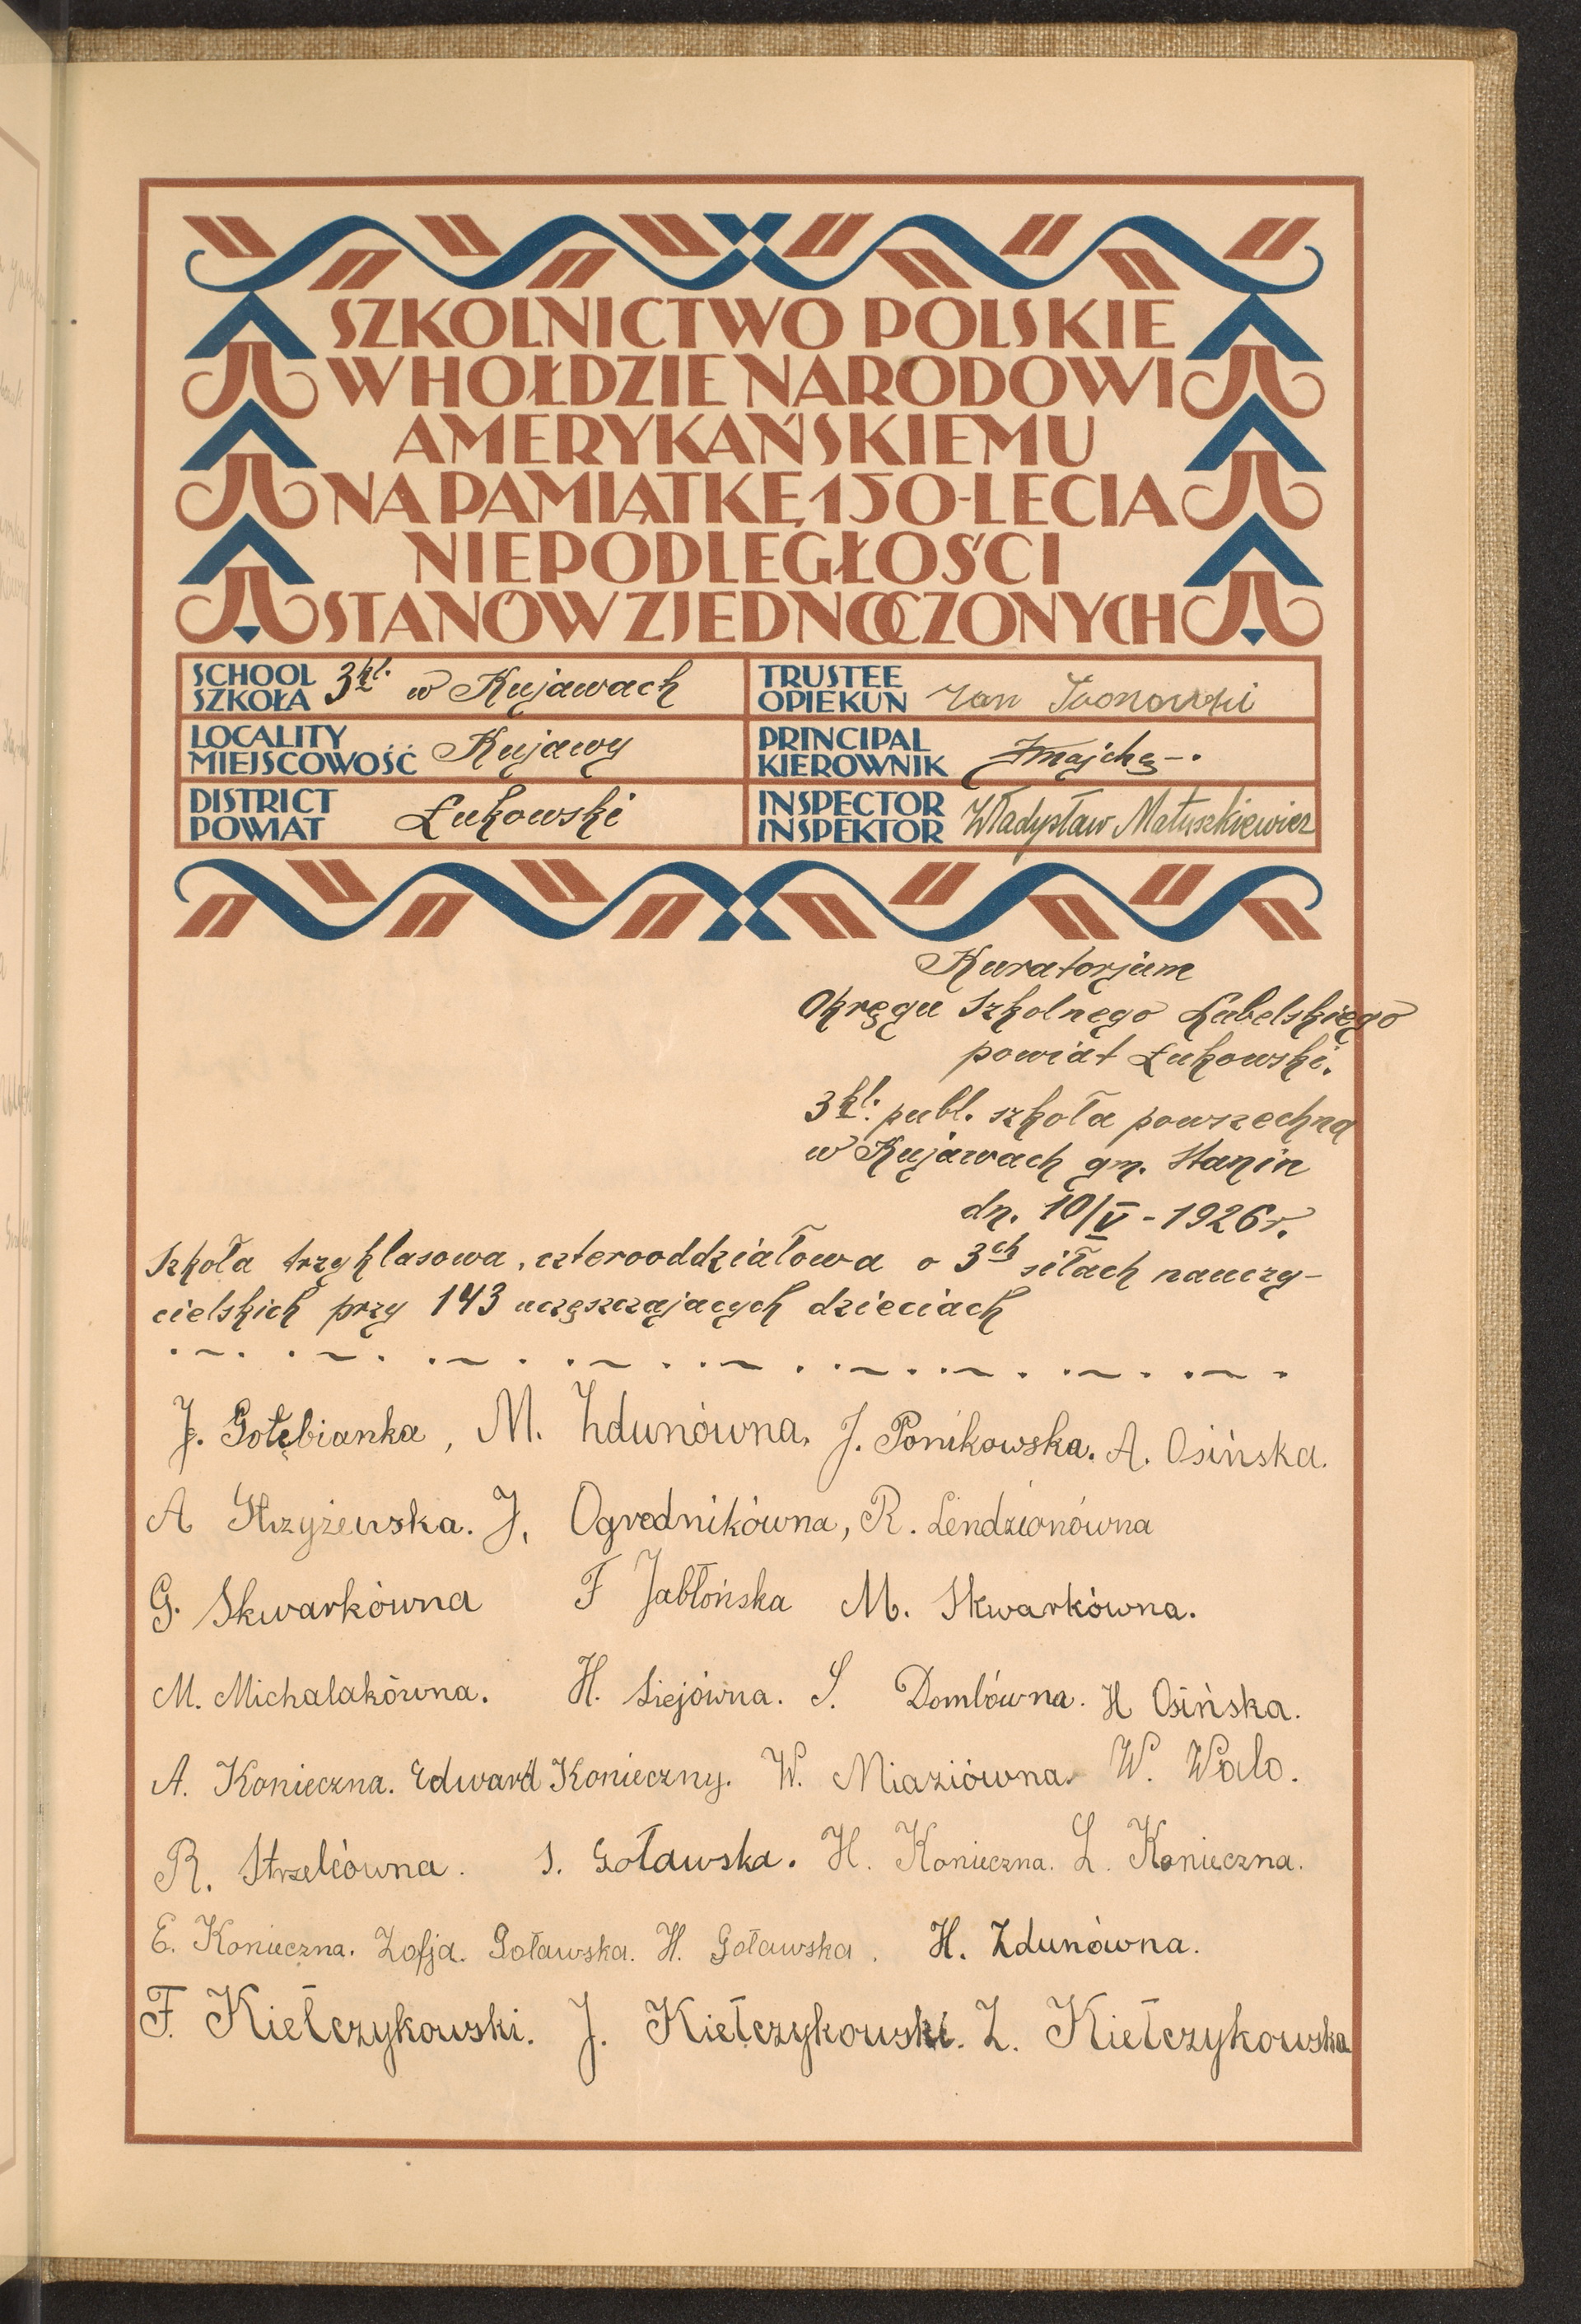 SZKOLNICTWO POLSKIE
W HOŁDZIE NARODOWI
AMERYKAŃSKIEMU
NA PAMIĄTKĘ 150-LECIA
NIEPODLEGŁOŚCI
STANÓW ZJEDNOCZONYCH
SCHOOL
SZKOŁA 3kl. w Kujawach
TRUSTEE
OPIEKUN Jan
LOCALITY
MIEJSCOWOŚĆ Kujawy
PRINCIPAL
KIEROWNIK
DISTRICT
POWIAT Łukowski
INSPECTOR
INSPEKTOR Władysław Matuszkiewicz
Kuratorjum
Okręgu Szkolnego Lubelskiego
powiat Łukowski.
3kl. publ. szkoła powszechna
w Kujawach gm. Stanin
dn. 10/V - 1926 r.
Szkoła trzyklasowa, czterooddziałowa o 3ch siłach nauczy-
cielskich przy 143 uczęszczajacych dzieciach
J. Gołębianka, M. Zdunówna, J. Ponikowska. A. Osińska.
A Strzyżewska. J. Ogrednikówna, R. Lendzionówna
G. Skwarkówna F Jabłońska M. Skwarkówna.
M. Michalakówna. H. Siejówna. S. Domlówna. H Osińska.
A. Konieczna. Edward Konieczny. W. Miaziówna. W. Walo.
R. Strzelcówna. S. Goławska. H. Konieczna. L. Konieczna.
E. Konieczna. Zofja. Goławska. H. Goławska. H. Zdunówna.
F. Kiełczykowski. J. Kiełczykowski. Z. Kiełczykowska